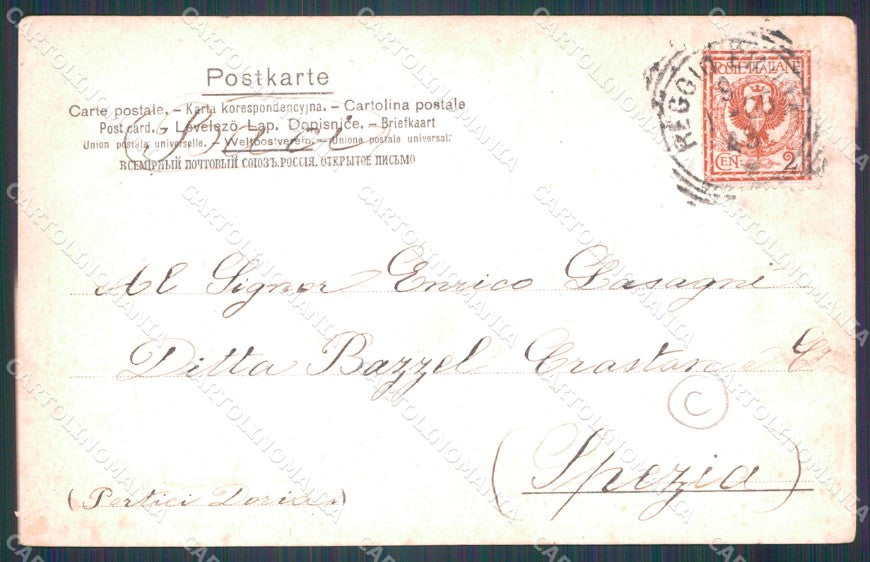 Postkarte
Carte postale. – Karta korespondencyjna. – Cartolina postale
Post card. – Levelező-Lap. Dopisnice. – Briefkaart
Union postale universelle. – Weltpostverein. – Unione postale universal.
ВСЕМІРНЫЙ ПОЧТОВЫЙ СОЮЗЪ. РОССІЯ. ОТКРЫТОЕ ПИСЬМО
POSTE ITALIANE
CEN 2
REGGIO
Al Signor Enrico Lasagni
Ditta Bazzel Crastan e C
(Spezia)
(Portici Doria)
C
CARTOLINOMANIA